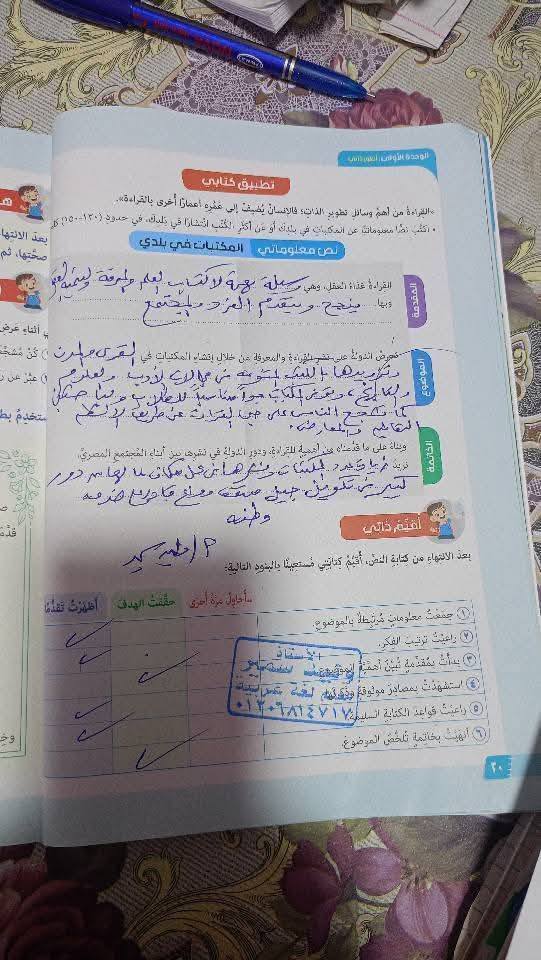 الوحدة الأولى: أطور ذاتي
تطبيق كتابي
«القراءةُ من أهمِّ وسائلِ تطويرِ الذاتِ؛ فالإنسانُ يُضيفُ إلى عُمُرِه أعمارًا أُخرى بالقراءةِ».
• نكتبُ نصًّا معلوماتيًّا عن المكتباتِ في بلدِك أو عَنْ أكثرِ الكُتُبِ انتشارًا في بلدِك، في حدودِ (١٢٠-١٥٠) كلمة
نص معلوماتي المكتبات في بلدي
المقدمة
القراءةُ غذاءُ العقلِ، وهي وسيلة مهمة لاكتساب العلم والمعرفة وتنمية
وبها ينجح ويتقدم الفرد والمجتمع
الموضوع
تحرصُ الدولةُ على نشرِ القراءةِ والمعرفةِ من خلالِ إنشاءِ المكتباتِ في القرى والمدن
وتزويدها بالكتب المتنوعة في مجالات الأدب والعلوم
والتاريخ، وتوفر المكتبات جوًا مناسبًا للاطلاع
كما تشجع الناس على حب القراءة عن طريق الأنشطة
الثقافية والمعارض.
الخاتمة
وبناءً على ما قدَّمناه عن أهميةِ القراءةِ، ودورِ الدولةِ في نشرِها بينَ أبناءِ المُجتمعِ المصريِّ
نريد المكتبات ونشرها في كل مكان لما لها من دور
كبير في تكوين جيل مثقف واع قادر على خدمة
وطنه
أُقيّم ذاتي
بعدَ الانتهاءِ من كتابةِ النصِّ، أُقيِّمُ كتابتي مُستعينًا بالبنودِ التاليةِ:
سأحاولُ مرةً أخرى حقَّقتُ الهدفَ أظهرتُ تقدُّمًا
① جمعتُ معلوماتٍ مُرتبطةً بالموضوعِ.
② راعيتُ ترتيبَ الفِكَرِ.
③ بدأتُ بمُقدمةٍ تُبيِّنُ أهميةَ الموضوعِ.
④ استشهدتُ بمصادرَ موثوقةٍ وذكرتُها.
⑤ راعيتُ قواعدَ الكتابةِ السليمةِ.
⑥ أنهيتُ بخاتمةٍ تُلخِّصُ الموضوعَ.
الأستاذ
وليد سمير
لغة عربية
٠١٢٠٦٨١٤٧١٧
٢٨